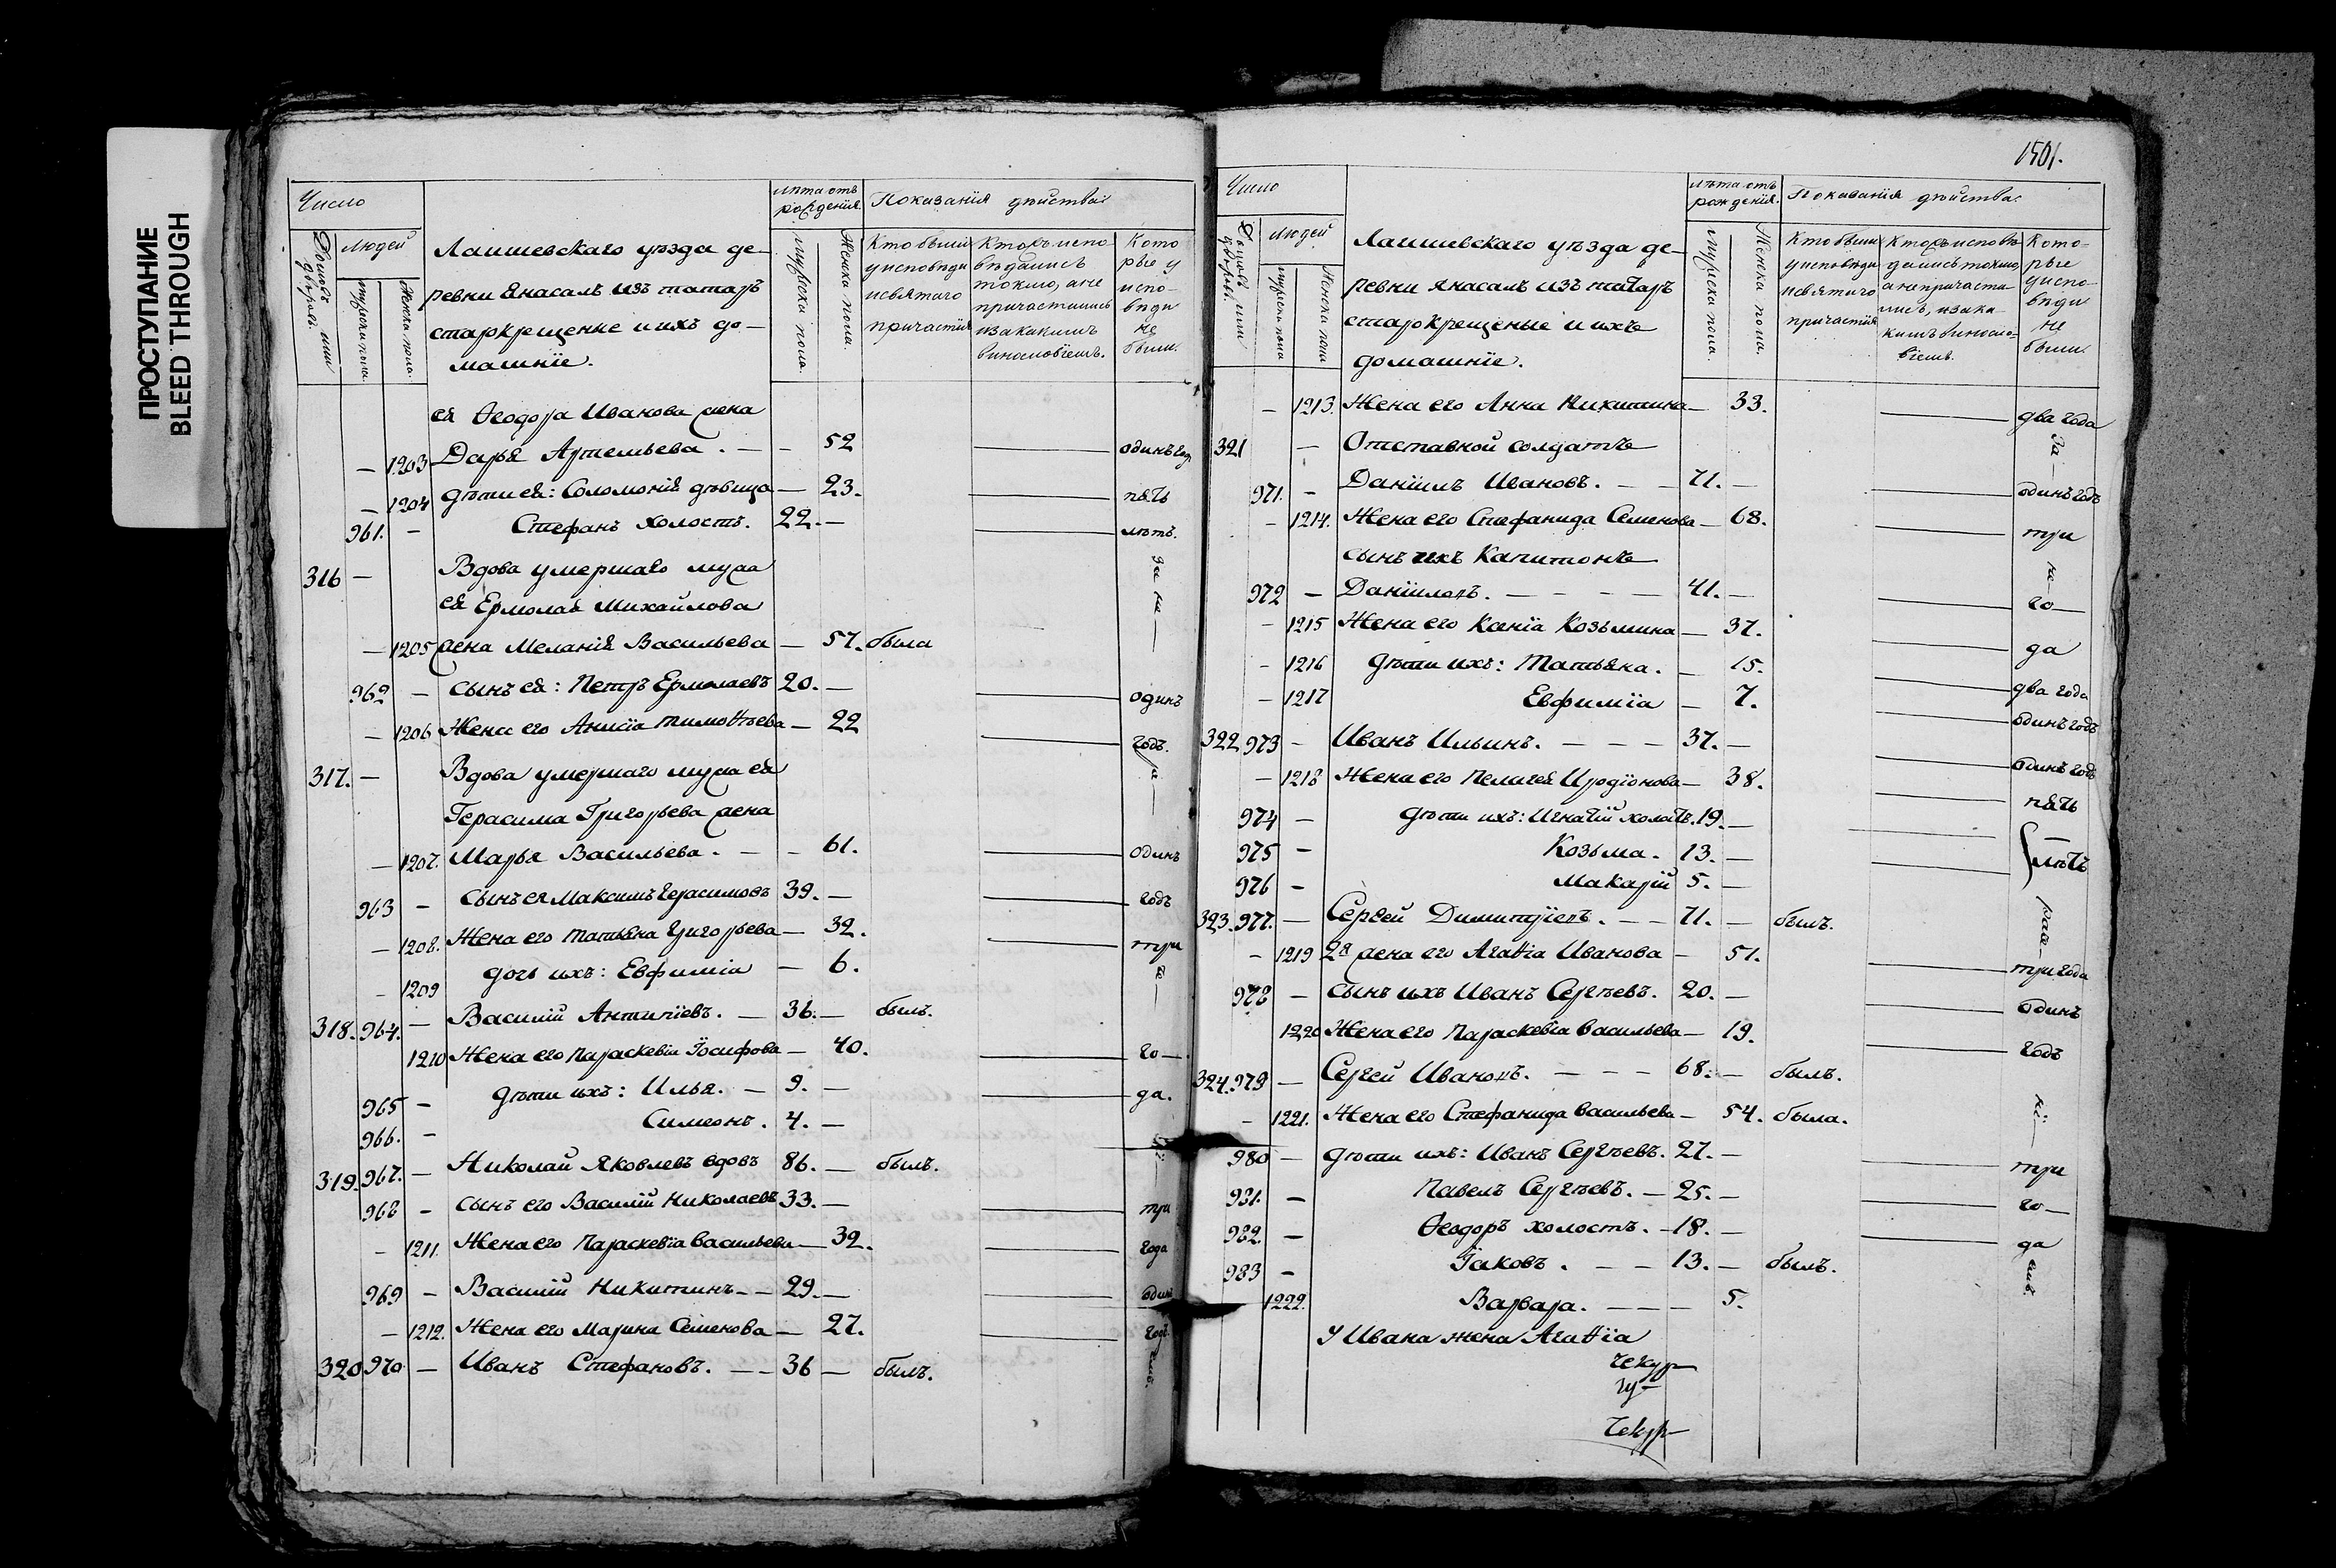 ПРОСТУПАНИЕ
BLEED THROUGH
Число
лѣта отъ рожденія.
Показанія дѣйства:
Домовъ или дворовъ.
Людей
мужеска пола
женска пола.
Лаишевскаго уѣзда де-
ревни Янасалъ изъ татаръ
старкрещеные и ихъ до-
машніе.
Мужеска пола.
Женска пола.
Кто были
у исповѣди
и святаго
причастія
Кторъ испо
вѣдались
токмо, а не
причастились
и за какимъ
винословіемъ.
Кото
рые у
испо-
вѣди
не
были.
ея Ѳеодора Иванова жена
— 1203 Дарья Артемьева. — — 52 одинъ годъ
— 1204 дѣти ея: Соломонія дѣвица — 23. пять
961. — Стефанъ холостъ. 22. — лѣтъ.
316 — Вдова умершаго мужа
ея Ермолая Михайлова
— 1205 жена Меланія Васильева — 57. была
962 — сынъ ея: Петръ Ермолаевъ 20. — одинъ
— 1206 Жена его Анисія Тимоѳѣева — 22 годъ.
317. — Вдова умершаго мужа ея
Герасима Григорьева жена
— 1207. Марья Васильева. — — 61. одинъ
963 — сынъ ея Максимъ Герасимовъ 39. — годъ
— 1208. Жена его Татьяна Григорьева — 32. три
— 1209 дочь ихъ: Евфимія — 6.
318. 964. — Василій Антипіевъ. — 36. — былъ.
1210 Жена его Параскевія Іосифова — 40. го—
965 — дѣти ихъ: Илья. — 9. — да.
966. — Симеонъ. 4. —
319. 967. — Николай Яковлевъ вдовъ 86. — былъ.
968 — сынъ его Василій Николаевъ 33. — три
— 1211. Жена его Параскевія Васильева — 32. года
969 — Василій Никитинъ — — 29. — одинъ
— 1212. Жена его Марина Семенова — 27. годъ.
320 970 — Иванъ Стефановъ. — — 36 — былъ.
1501.
Число
лѣта отъ рожденія.
Показанія дѣйства.
Домовъ или дворовъ.
Людей
мужеска пола
Женска пола
Лаишевскаго уѣзда де-
ревни Янасалъ изъ татаръ
старокрещеные и ихъ
домашніе.
Мужеска пола.
Женска пола.
Кто были
у исповѣди
и святаго
причастія
Кторъ исповѣ
дались токмо,
а не причасти-
лись, и за ка-
кимъ виносло-
віемъ.
Кото-
рые
у испо-
вѣди
не
были.
— 1213. Жена его Анна Никитина — 33. два года
321 — Отставной солдатъ
971. — Даніилъ Ивановъ. — — 71. — одинъ годъ
— 1214. Жена его Стефанида Семенова — 68. три
сынъ ихъ Капитонъ
972 — Даніиловъ. — — — — 41. — го—
— 1215 Жена его Ксенія Козьмина — 37. да
— 1216 дѣти ихъ: Татьяна. — 15. два года
— 1217 Евфимія — 7. одинъ годъ
322 973 — Иванъ Ильинъ. — — — 37. — одинъ годъ
— 1218 Жена его Пелагея Иродіонова — 38. пять
974 — дѣти ихъ: Игнатій холостъ. 19. —
975 — Козьма. 13. — лѣтъ
976 — Макарій 5. —
323. 977. — Сергей Димитріевъ. — — 71. — былъ.
— 1219 2я жена его Агаѳія Иванова — 51. три года
978 — сынъ ихъ Иванъ Сергѣевъ. 20. — одинъ
1220 Жена его Параскевія Васильева — 19. годъ
324. 979 — Сергей Ивановъ. — — — 68. — былъ.
— 1221. Жена его Стефанида Васильева — 54. была.
980 — дѣти ихъ: Иванъ Сергѣевъ. 27. — три
981. — Павелъ Сергѣевъ. — 25. — го—
982. — Ѳеодоръ холостъ. — 18. — да
983 — Іаковъ. — — 13. — былъ.
1222. Варвара. — — — 5.
У Ивана жена Агаѳія